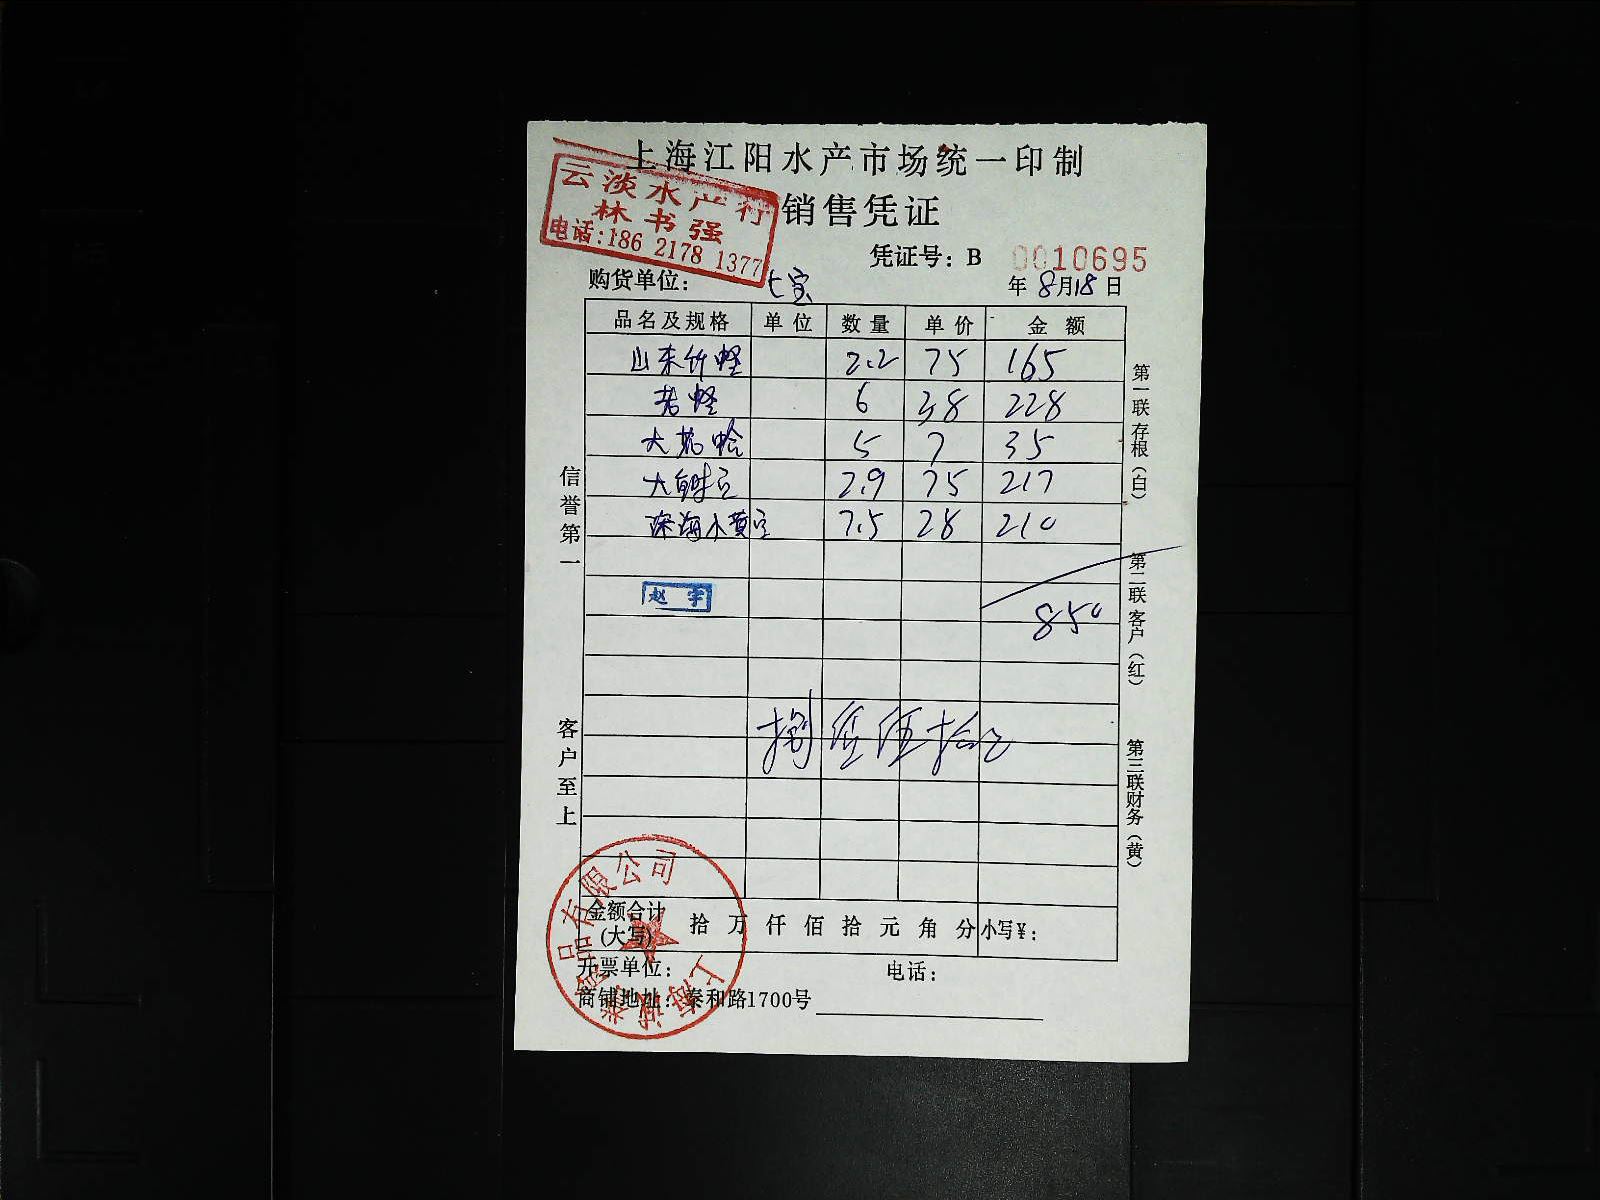 上海江阳水产市场统一印制
云淡水产行
林书强
电话:186 2178 1377
销售凭证
凭证号: B 0010695
购货单位: 七宝
年 8月18日
品名及规格 单位 数量 单价 金额
山东竹蛏 2.2 75 165
芦蛏 6 38 228
大花蛤 5 7 35
大 2.9 75 217
深海小黄 7.5 28 210
赵宇
850
捌佰伍拾元
信誉第一
客户至上
第一联 存根(白)
第二联 客户(红)
第三联 财务(黄)
金额合计(大写) 拾 万 仟 佰 拾 元 角 分 小写¥:
开票单位: 电话:
商铺地址: 泰和路1700号
上海 食品有限公司